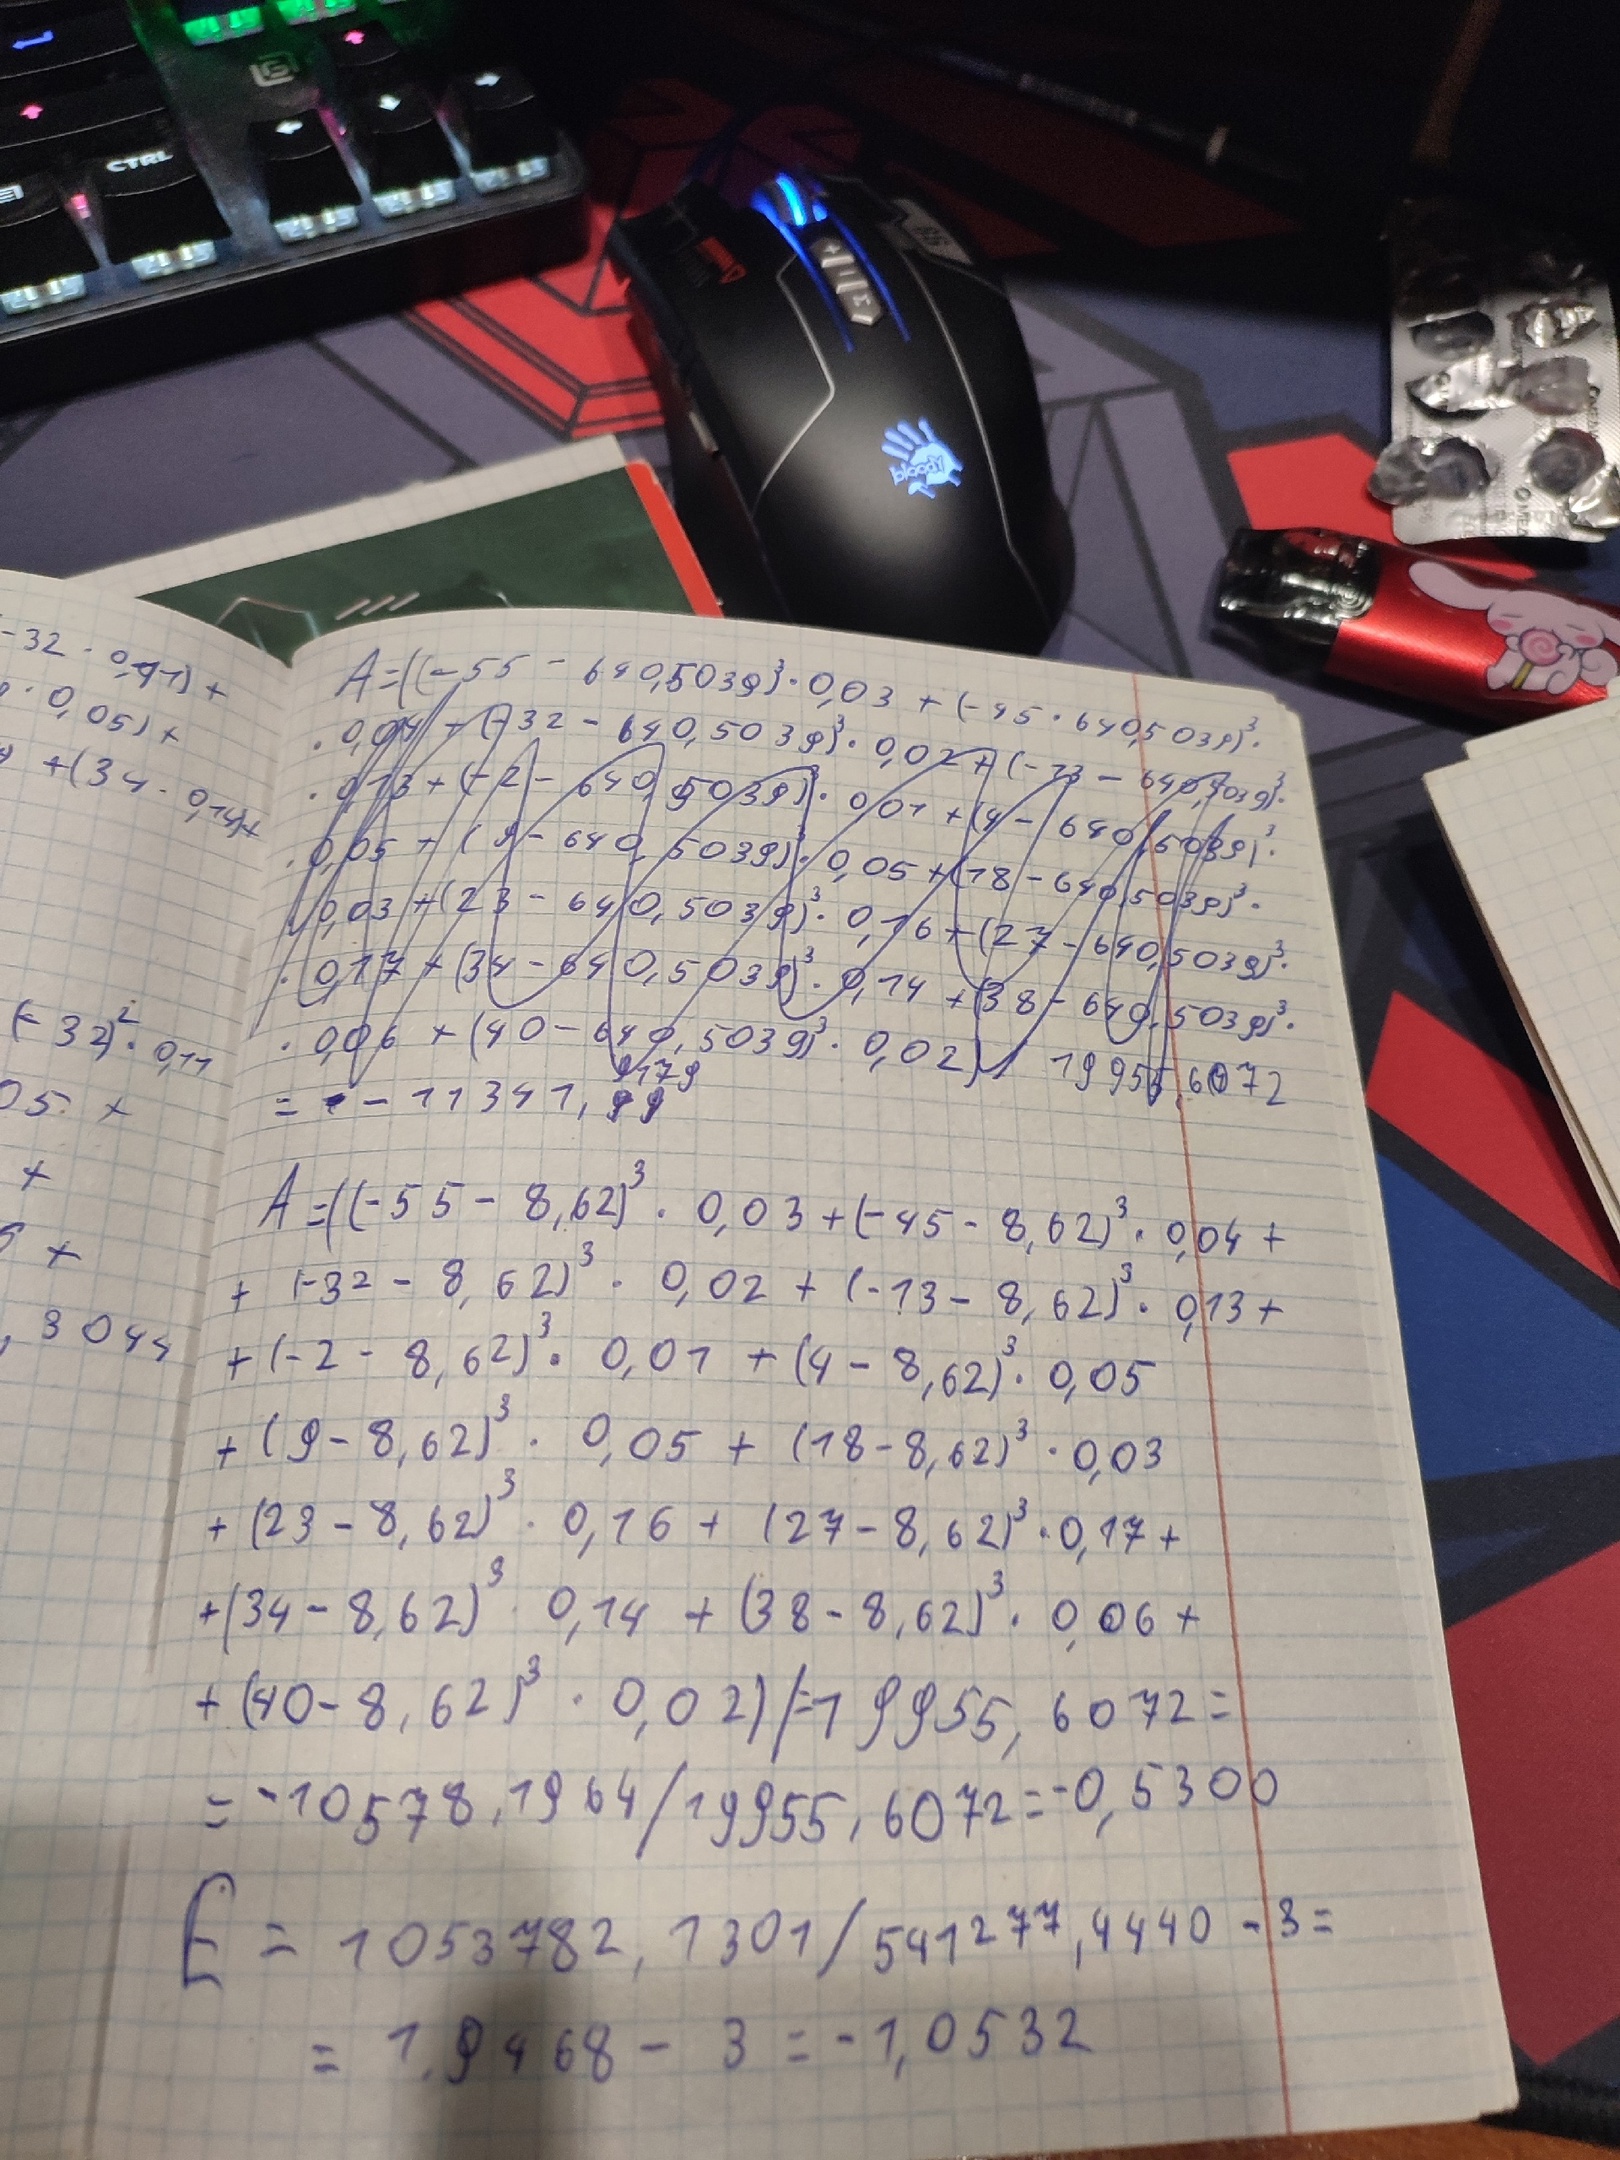 CTRL
bloody
-32 · 0,11) +
· 0,05) +
+(34 · 0,14)+
(-32)² · 0,11
05 · +
+
+
, 3044
A=((-55 - 640,5039)³ · 0,03 + (-45 · 640,5039)³ ·
· 0,04 + (-32 - 640,5039)³ · 0,02 + (-13 - 640,5039)³ ·
· 0,13 + (-2 - 640,5039)³ · 0,01 + (4 - 640,5039)³ ·
· 0,05 + (9 - 640,5039)³ · 0,05 + (18 - 640,5039)³ ·
· 0,03 + (23 - 640,5039)³ · 0,16 + (27 - 640,5039)³ ·
· 0,17 + (34 - 640,5039)³ · 0,14 + (38 - 640,5039)³ ·
· 0,06 + (40 - 640,5039)³ · 0,02) / 19955,6072
= - 11341, 9179
A=((-55 - 8,62)³ · 0,03 + (-45 - 8,62)³ · 0,04 +
+ (-32 - 8,62)³ · 0,02 + (-13 - 8,62)³ · 0,13 +
+ (-2 - 8,62)³ · 0,01 + (4 - 8,62)³ · 0,05
+ (9 - 8,62)³ · 0,05 + (18 - 8,62)³ · 0,03
+ (23 - 8,62)³ · 0,16 + (27 - 8,62)³ · 0,17 +
+(34 - 8,62)³ · 0,14 + (38 - 8,62)³ · 0,06 +
+ (40 - 8,62)³ · 0,02) / 19955, 6072 =
= -10578,1964 / 19955, 6072 = -0,5300
E = 1053782, 1301 / 541277,4440 - 3 =
= 1,9468 - 3 = -1,0532